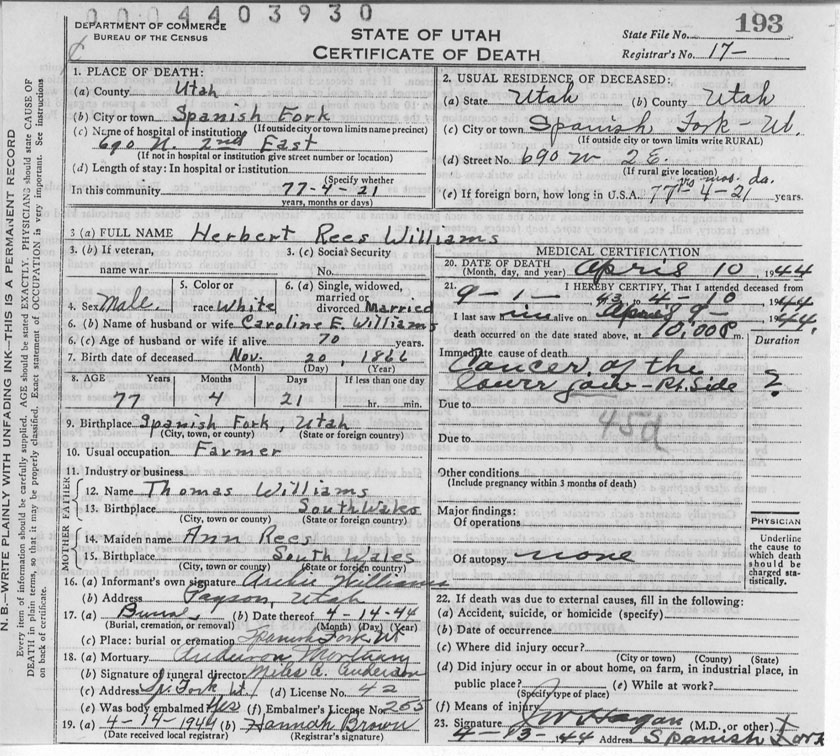 0004403930
193
DEPARTMENT OF COMMERCE
BUREAU OF THE CENSUS
STATE OF UTAH
CERTIFICATE OF DEATH
State File No.
Registrar's No. 17-
N. B.—WRITE PLAINLY WITH UNFADING INK—THIS IS A PERMANENT RECORD
Every item of information should be carefully supplied. AGE should be stated EXACTLY. PHYSICIANS should state CAUSE OF
DEATH in plain terms, so that it may be properly classified. Exact statement of OCCUPATION is very important. See instructions
on back of certificate.
1. PLACE OF DEATH:
(a) County Utah
(b) City or town Spanish Fork
(If outside city or town limits name precinct)
(c) Name of hospital or institution
690 N. 2nd East
(If not in hospital or institution give street number or location)
(d) Length of stay: In hospital or institution
(Specify whether
In this community 77-4-21
years, months or days)
2. USUAL RESIDENCE OF DECEASED:
(a) State Utah (b) County Utah
(c) City or town Spanish Fork - Ut.
(If outside city or town limits write RURAL)
(d) Street No. 690 2 E.
(If rural give location)
(e) If foreign born, how long in U.S.A. 77 yrs 4 mos. 21 da. years.
3 (a) FULL NAME Herbert Rees Williams
3. (b) If veteran,
name war
3. (c) Social Security
No.
4. Sex Male
5. Color or
race White
6. (a) Single, widowed,
married or
divorced Married
6. (b) Name of husband or wife Caroline E. Williams
6. (c) Age of husband or wife if alive 70 years.
7. Birth date of deceased Nov. 20, 1866
(Month) (Day) (Year)
8. AGE Years Months Days If less than one day
77 4 21 hr. min.
9. Birthplace Spanish Fork, Utah
(City, town, or county) (State or foreign country)
10. Usual occupation Farmer
11. Industry or business
FATHER
12. Name Thomas Williams
13. Birthplace South Wales
(City, town or county) (State or foreign country)
MOTHER
14. Maiden name Ann Rees
15. Birthplace South Wales
(City, town or county) (State or foreign country)
16. (a) Informant's own signature Archie Williams
(b) Address Payson, Utah
17. (a) Burial (b) Date thereof 4-14-44
(Burial, cremation, or removal) (Month) (Day) (Year)
(c) Place: burial or cremation Spanish Fork Ut
18. (a) Mortuary Anderson Mortuary
(b) Signature of funeral director Miles A. Anderson
(c) Address Sp. Fork Ut. (d) License No. 42
(e) Was body embalmed Yes (f) Embalmer's License No. 265
19. (a) 4-14-1944 (b) Hannah Brown
(Date received local registrar) (Registrar's signature)
MEDICAL CERTIFICATION
20. DATE OF DEATH
(Month, day, and year) April 10, 1944
21. I HEREBY CERTIFY, That I attended deceased from
9-1- 1943, to 4-10 1944
I last saw him alive on April 9- 1944,
death occurred on the date stated above, at 10:00P m.
Duration
Immediate cause of death
Cancer of the
lower jaw - Rt. Side
?
Due to
45d
Due to
Other conditions
(Include pregnancy within 3 months of death)
Major findings:
Of operations
Of autopsy none
PHYSICIAN
Underline
the cause to
which death
should be
charged sta-
tistically.
22. If death was due to external causes, fill in the following:
(a) Accident, suicide, or homicide (specify)
(b) Date of occurrence
(c) Where did injury occur?
(City or town) (County) (State)
(d) Did injury occur in or about home, on farm, in industrial place, in
public place? (e) While at work?
(Specify type of place)
(f) Means of injury
23. Signature J W Hagan (M.D., or other) X
4-13-44 Address Spanish Fork